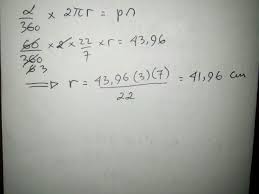 α/360 × 2πr = p∩
60/360 × 2 × 22/7 × r = 43,96
6 3
⟹ r = 43,96 (3)(7)/22 = 41,96 cm